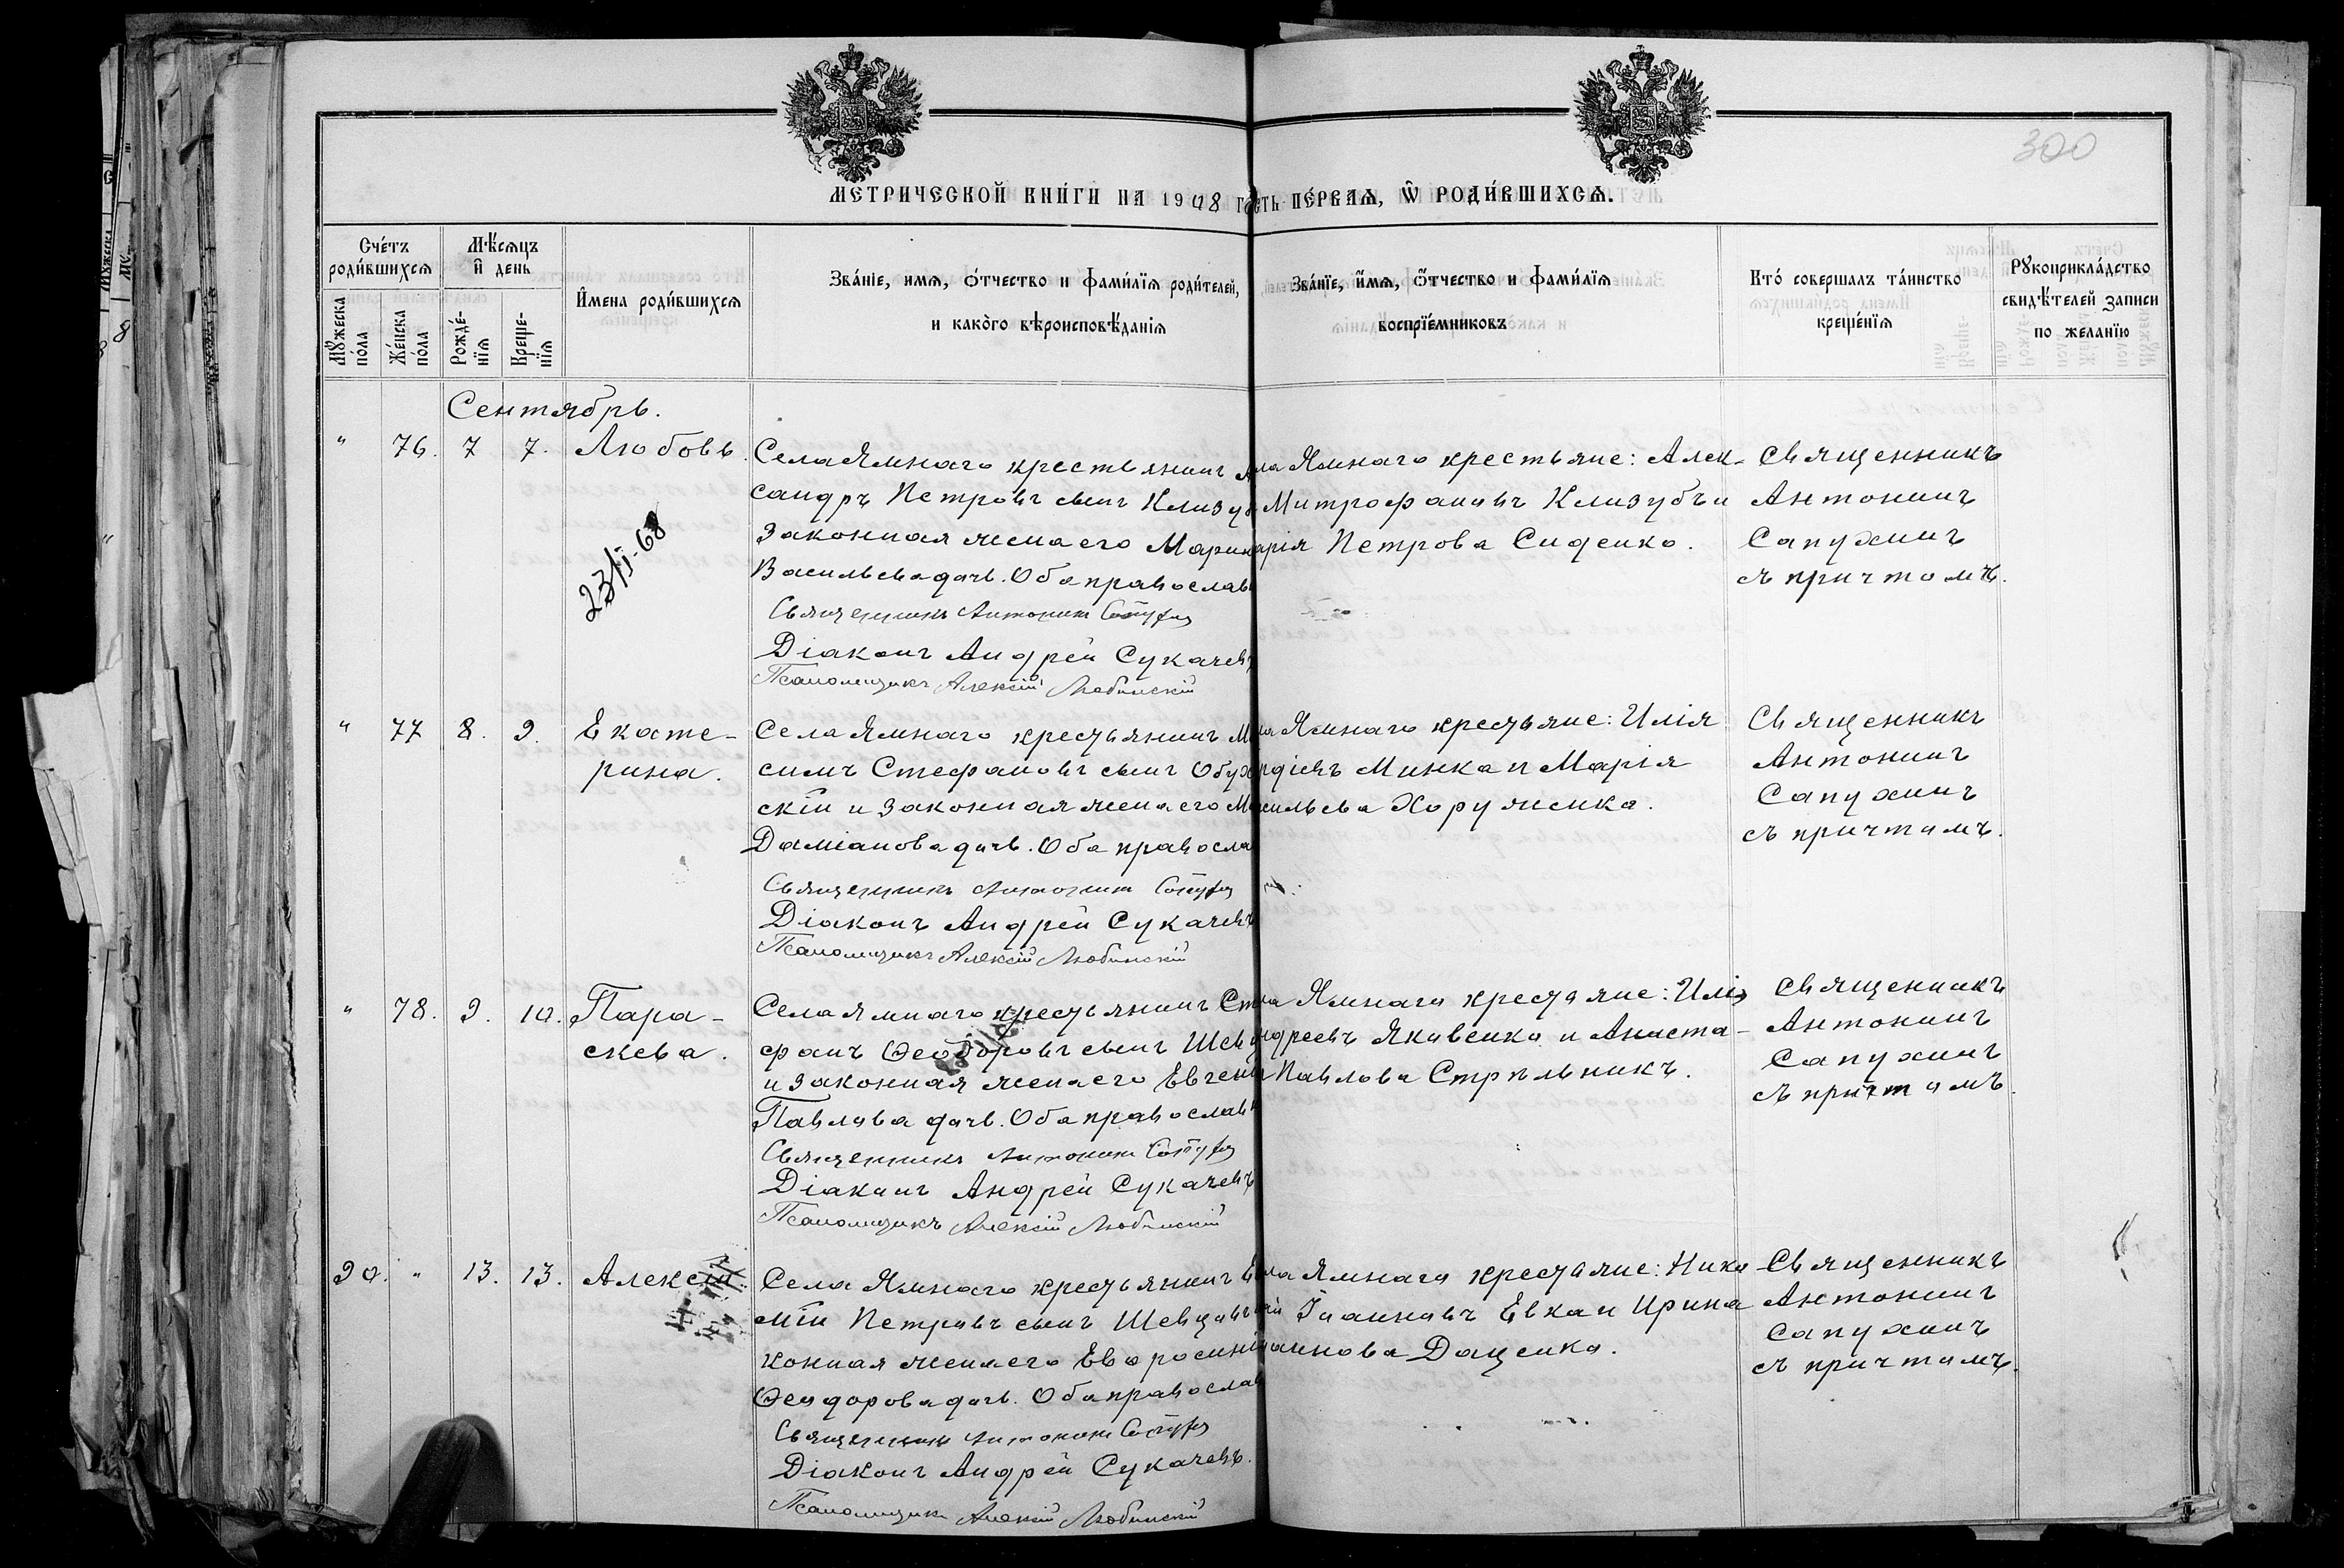 300
МЕТРИЧЕСКОЙ КНИ́ГИ НА 1908 г
сть ПЕ́РВАѦ, Ѿ РОДИ́ВШИХСѦ.
Сче́тъ роди́вшихсѧ
Мꙋ́жеска по́ла
Же́нска по́ла
Мѣ́сѧцъ и҆ день
Рожде́нїѧ
Креще́нїѧ
И҆мена роди́вшихсѧ
Зва́нїе, имѧ, ѻ҆́тчество и фами́лїѧ роди́телей,
и како́го вѣроисповѣ́данїѧ
Зва́нїе, и҆́мѧ, ѻ҆́тчество и фами́лїѧ
воспрїе́мниковъ
Кто́ соверша́лъ та́инство
креще́нїѧ
Рꙋкоприкла́дство
свидѣ́телей записи
по жела́нїю
Сентябрь.
" 76. 7 7. Любовь.
23/I-68
Села Ямнаго крестьянинъ Ал
сандръ Петровъ сынъ Клизуб
законная жена его Марин
Васильева дочь. Оба православ
Священникъ Антонинъ
Діаконъ Андрей Сукачевъ
Псаломщикъ Алексій Любинскій
ла Ямнаго крестьяне: Алек-
Митрофановъ Клизубъ и
арія Петрова Сиденко.
Священникъ
Антонинъ
Сапухинъ
съ причтомъ.
" 77 8. 9. Екате-
рина.
Села Ямнаго крестьянинъ М
симъ Стефановъ сынъ Обухо
скій и законная жена его М
Даміанова дочь. Оба правосла
Священникъ Антонинъ
Діаконъ Андрей Сукачевъ
Псаломщикъ Алексій Любинскій
ла Ямнаго крестьяне: Илія
рдіевъ Минка и Марія
сильева Хоруженко.
Священникъ
Антонинъ
Сапухинъ
съ причтомъ.
" 78. 9. 10. Пара-
скева.
Села Ямнаго крестьянинъ Ст
фанъ Ѳеодоровъ сынъ Шев
и законная жена его Евгенія
Павлова дочь. Оба православн
Священникъ Антонинъ
Діаконъ Андрей Сукачевъ
Псаломщикъ Алексій Любинскій
ла Ямнаго крестьяне: Илія
ндреевъ Яковенко и Анаста-
Павлова Стрѣльникъ.
Священникъ
Антонинъ
Сапухинъ
съ причтомъ.
90. " 13. 13. Алексѣй
Села Ямнаго крестьянинъ Е
мій Петровъ сынъ Шевцовъ
конная жена его Евфросинія
Ѳеодорова дочь. Оба православ
Священникъ Антонинъ
Діаконъ Андрей Сукачевъ.
Псаломщикъ Алексій Любинскій
ла Ямнаго крестьяне: Нико
лай Іоанновъ Евка и Ирина
оаннова Доценко.
Священникъ
Антонинъ
Сапухинъ
съ причтомъ.